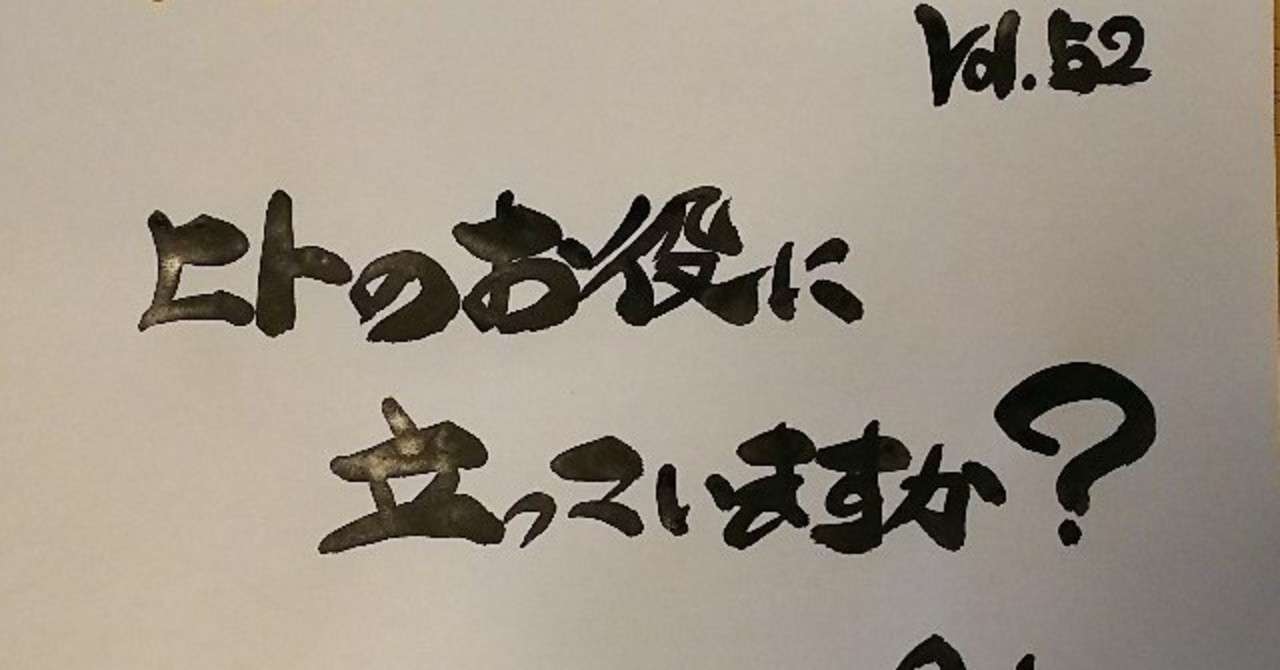 Vol.52
ヒトのお役に
立っていますか?